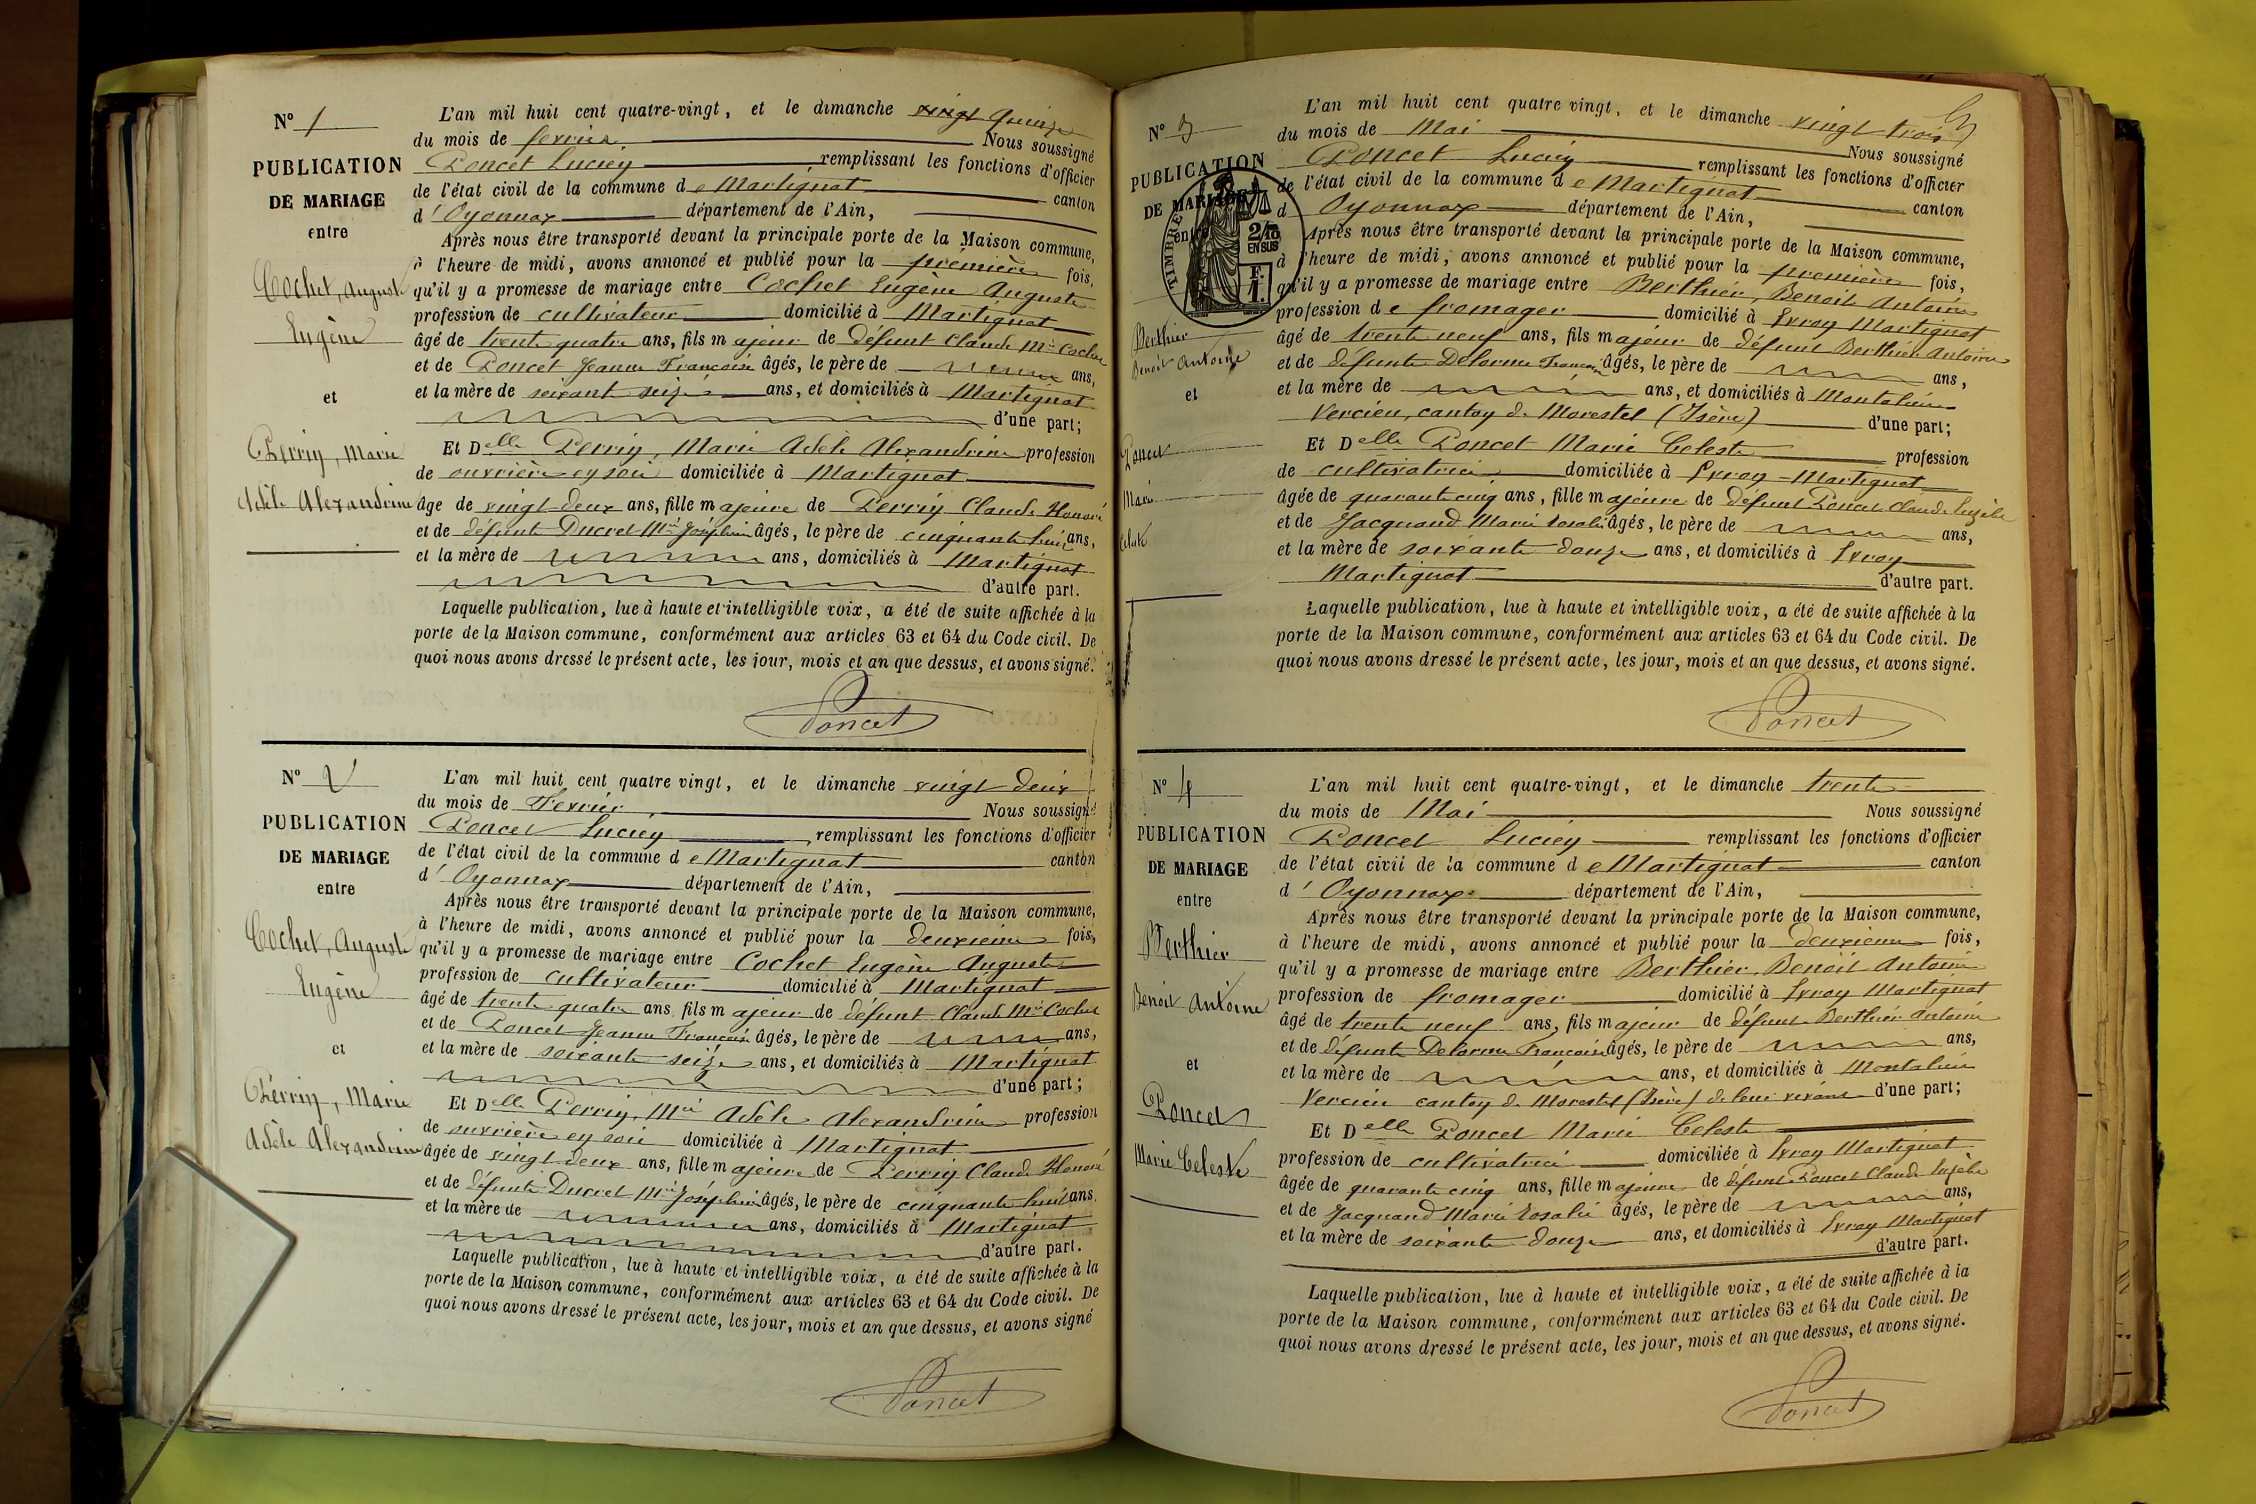 N° 1
PUBLICATION
DE MARIAGE
entre
Cochet, Auguste
Eugène
et
Perrin, Marie
Adèle Alexandrine
L'an mil huit cent quatre-vingt, et le dimanche vingt quinze
du mois de fevrier Nous soussigné
Poncet Lucien remplissant les fonctions d'officier
de l'état civil de la commune de Martignat canton
d'Oyonnax département de l'Ain,
Après nous être transporté devant la principale porte de la Maison commune,
à l'heure de midi, avons annoncé et publié pour la première fois,
qu'il y a promesse de mariage entre Cochet Eugène Auguste
profession de cultivateur domicilié à Martignat
âgé de trente quatre ans, fils majeur de défunt Claude Mie Cochet
et de Poncet Jeanne Françoise âgés, le père de ans,
et la mère de soixant seize ans, et domiciliés à Martignat
d'une part;
Et Delle Perrin, Marie Adèle Alexandrine profession
de ouvrière en soie domiciliée à Martignat
âge de vingt-deux ans, fille majeure de Perrin Claude Honoré
et de défunte Ducret Mie Joséphine âgés, le père de cinquante huit ans,
et la mère de ans, domiciliés à Martignat
d'autre part.
Laquelle publication, lue à haute et intelligible voix, a été de suite affichée à la
porte de la Maison commune, conformément aux articles 63 et 64 du Code civil. De
quoi nous avons dressé le présent acte, les jour, mois et an que dessus, et avons signé.
Poncet
N° 2
PUBLICATION
DE MARIAGE
entre
Cochet, Auguste
Eugène
et
Perrin, Marie
Adèle Alexandrine
L'an mil huit cent quatre vingt, et le dimanche vingt deux
du mois de Fevrier Nous soussigné
Poncet Lucien remplissant les fonctions d'officier
de l'état civil de la commune de Martignat canton
d'Oyonnax département de l'Ain,
Après nous être transporté devant la principale porte de la Maison commune,
à l'heure de midi, avons annoncé et publié pour la deuxième fois,
qu'il y a promesse de mariage entre Cochet Eugène Auguste
profession de cultivateur domicilié à Martignat
âgé de trente quatre ans, fils majeur de défunt Claude Mie Cochet
et de Poncet Jeanne Françoise âgés, le père de ans,
et la mère de soixante seize ans, et domiciliés à Martignat
d'une part;
Et Delle Perrin, Mie Adèle Alexandrine profession
de ouvrière en soie domiciliée à Martignat
âgée de vingt-deux ans, fille majeure de Perrin Claude Honoré
et de défunte Ducret Mie Joséphine âgés, le père de cinquante huit ans,
et la mère de ans, domiciliés à Martignat
d'autre part.
Laquelle publication, lue à haute et intelligible voix, a été de suite affichée à la
porte de la Maison commune, conformément aux articles 63 et 64 du Code civil. De
quoi nous avons dressé le présent acte, les jour, mois et an que dessus, et avons signé
Poncet
N° 3
PUBLICATION
DE MARIAGE
entre
TIMBRE
2/10
EN SUS
F.
1.
Berthier
Benoit Antoine
et
Poncet
Marie
Celeste
L'an mil huit cent quatre vingt, et le dimanche vingt trois
du mois de Mai Nous soussigné
Poncet Lucien remplissant les fonctions d'officier
de l'état civil de la commune de Martignat canton
d Oyonnax département de l'Ain,
Après nous être transporté devant la principale porte de la Maison commune,
à l'heure de midi, avons annoncé et publié pour la première fois,
qu'il y a promesse de mariage entre Berthier, Benoit Antoine
profession de fromager domicilié à Evron Martignat
âgé de trente neuf ans, fils majeur de défunt Berthier Antoine
et de défunte Delorme Françoise âgés, le père de ans,
et la mère de ans, et domiciliés à Montalieu
Vercieu, canton de Morestel (Isère) d'une part;
Et Delle Poncet Marie Celeste profession
de cultivatrice domiciliée à Evron - Martignat
âgée de quarante cinq ans, fille majeure de défunt Poncet Claude
et de Jacquand Marie Rosalie âgés, le père de ans,
et la mère de soixante douze ans, et domiciliés à Evron
Martignat d'autre part.
Laquelle publication, lue à haute et intelligible voix, a été de suite affichée à la
porte de la Maison commune, conformément aux articles 63 et 64 du Code civil. De
quoi nous avons dressé le présent acte, les jour, mois et an que dessus, et avons signé.
Poncet
N° 4
PUBLICATION
DE MARIAGE
entre
Berthier
Benoit Antoine
et
Poncet
Marie Celeste
L'an mil huit cent quatre-vingt, et le dimanche trente
du mois de Mai Nous soussigné
Poncet Lucien remplissant les fonctions d'officier
de l'état civil de la commune de Martignat canton
d'Oyonnax département de l'Ain,
Après nous être transporté devant la principale porte de la Maison commune,
à l'heure de midi, avons annoncé et publié pour la deuxième fois,
qu'il y a promesse de mariage entre Berthier, Benoit Antoine
profession de fromager domicilié à Evron Martignat
âgé de trente neuf ans, fils majeur de défunt Berthier Antoine
et de défunte Delorme Françoise âgés, le père de ans,
et la mère de ans, et domiciliés à Montalieu
Vercieu canton de Morestel (Isère) de leur vivant d'une part;
Et Delle Poncet Marie Celeste
profession de cultivatrice domiciliée à Evron Martignat
âgée de quarante cinq ans, fille majeure de défunt Poncet Claude
et de Jacquand Marie Rosalie âgés, le père de ans,
et la mère de soixante douze ans, et domiciliés à Evron Martignat
d'autre part.
Laquelle publication, lue à haute et intelligible voix, a été de suite affichée à la
porte de la Maison commune, conformément aux articles 63 et 64 du Code civil. De
quoi nous avons dressé le présent acte, les jour, mois et an que dessus, et avons signé.
Poncet